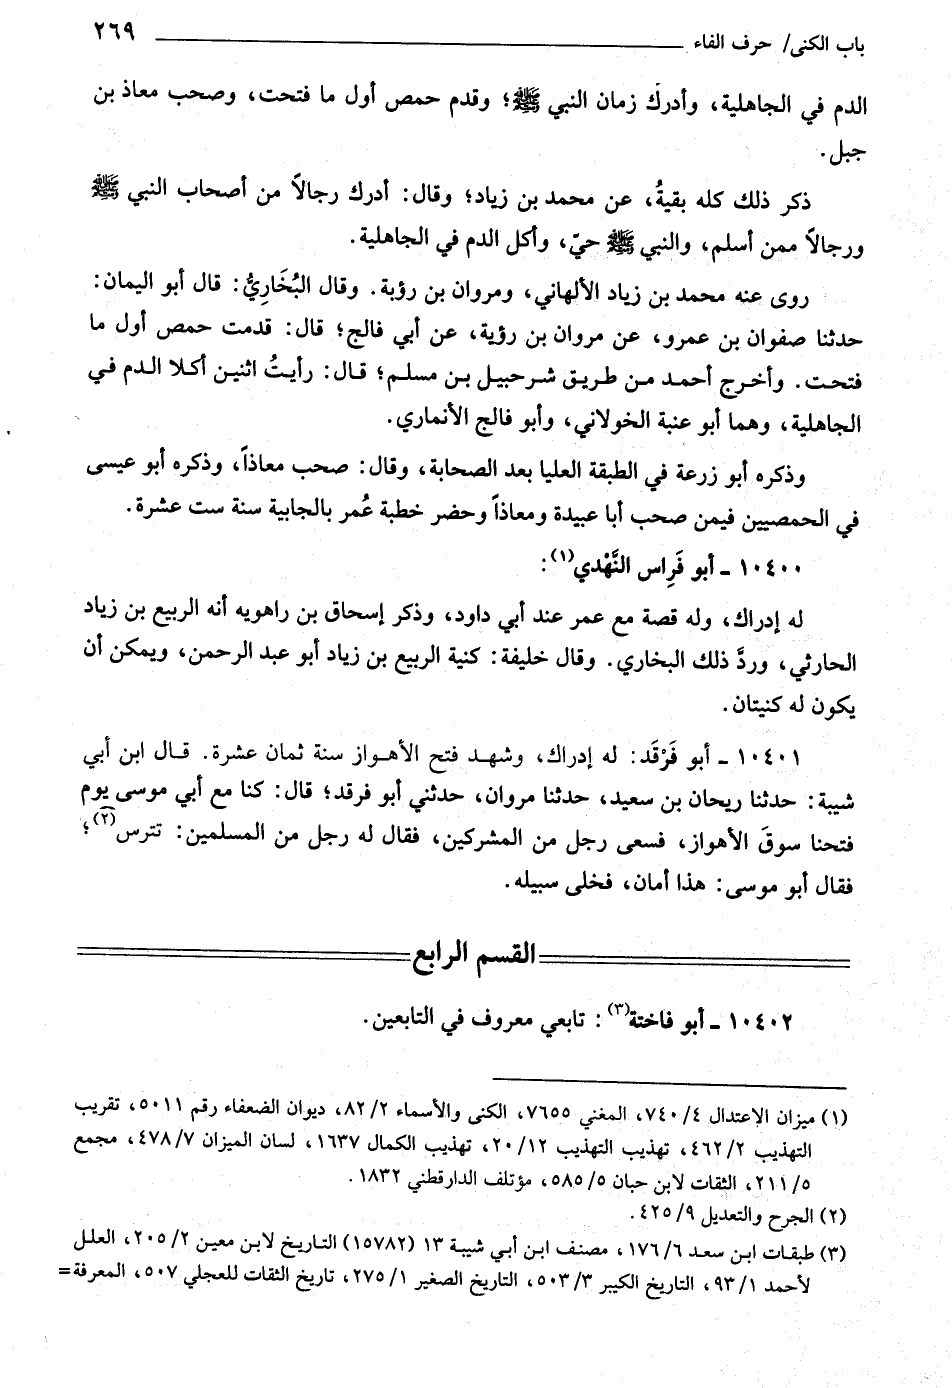 باب الكنى/ حرف الفاء ٢٦٩
الدم في الجاهلية، وأدرك زمان النبي ﷺ؛ وقدم حمص أول ما فتحت، وصحب معاذ بن
جبل.
ذكر ذلك كله بقيةُ، عن محمد بن زياد؛ وقال: أدرك رجالاً من أصحاب النبي ﷺ
ورجالاً ممن أسلم، والنبي ﷺ حيّ، وأكل الدم في الجاهلية.
روى عنه محمد بن زياد الألهاني، ومروان بن رؤبة. وقال البُخَارِيُّ: قال أبو اليمان:
حدثنا صفوان بن عمرو، عن مروان بن رؤية، عن أبي فالج؛ قال: قدمت حمص أول ما
فتحت. وأخرج أحمد من طريق شرحبيل بن مسلم؛ قال: رأيتُ اثنين أكلا الدم في
الجاهلية، وهما أبو عنبة الخولاني، وأبو فالج الأنماري.
وذكره أبو زرعة في الطبقة العليا بعد الصحابة، وقال: صحب معاذاً، وذكره أبو عيسى
في الحمصيين فيمن صحب أبا عبيدة ومعاذاً وحضر خطبة عُمر بالجابية سنة ست عشرة.
١٠٤٠٠ ـ أبو فَرِاس النَّهْدي(١):
له إدراك، وله قصة مع عمر عند أبي داود، وذكر إسحاق بن راهويه أنه الربيع بن زياد
الحارثي، وردَّ ذلك البخاري. وقال خليفة: كنية الربيع بن زياد أبو عبد الرحمن، ويمكن أن
يكون له كنيتان.
١٠٤٠١ ـ أبو فَرْقَد: له إدراك، وشهد فتح الأهواز سنة ثمان عشرة. قال ابن أبي
شيبة: حدثنا ريحان بن سعيد، حدثنا مروان، حدثني أبو فرقد؛ قال: كنا مع أبي موسى يوم
فتحنا سوقَ الأهواز، فسعى رجل من المشركين، فقال له رجل من المسلمين: تترس(٢)؛
فقال أبو موسى: هذا أمان، فخلى سبيله.
القسم الرابع
١٠٤٠٢ ـ أبو فاختة(٣): تابعي معروف في التابعين.
(١) ميزان الاعتدال ٧٤٠/٤، المغني ٧٦٥٥، الكنى والأسماء ٨٢/٢، ديوان الضعفاء رقم ٥٠١١، تقريب
التهذيب ٤٦٢/٢، تهذيب التهذيب ٢٠/١٢، تهذيب الكمال ١٦٣٧، لسان الميزان ٤٧٨/٧، مجمع
٢١١/٥، الثقات لابن حبان ٥٨٥/٥، مؤتلف الدارقطني ١٨٣٢.
(٢) الجرح والتعديل ٤٢٥/٩.
(٣) طبقات ابن سعد ١٧٦/٦، مصنف ابن أبي شيبة ١٣ (١٥٧٨٢) التاريخ لابن معين ٢٠٥/٢، العلل
لأحمد ٩٣/١، التاريخ الكبير ٥٠٣/٣، التاريخ الصغير ٢٧٥/١، تاريخ الثقات للعجلي ٥٠٧، المعرفة=